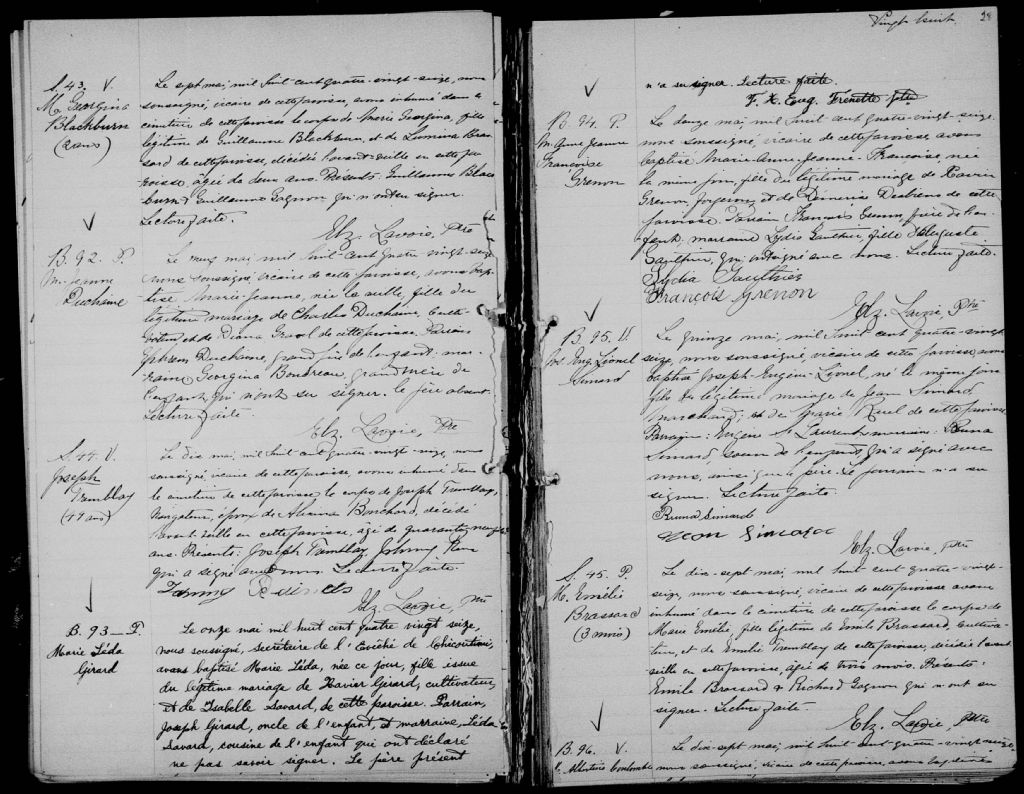 S. 43. V.
M. Georgina
Blackburn
(2 ans)
Le sept mai, mil huit cent quatre-vingt-seize, nous
soussigné, vicaire de cette paroisse, avons inhumé dans le
cimetière de cette paroisse le corps de Marie Georgina, fille
légitime de Guillaume Blackburn, et de Lumina Bras-
sard de cette paroisse, décédée l'avant-veille en cette pa-
roisse, âgée de deux ans. Présents: Guillaume Black-
burn & Guillaume Gagnon qui n'ont su signer
Lecture faite.
Elz. Lavoie, Ptre
B. 92. P.
M. Jeanne
Duchaine
Le neuf mai, mil huit cent quatre-vingt-seize
nous soussigné, vicaire de cette paroisse, avons bap-
tisé Marie-Jeanne, née la veille, fille du
légitime mariage de Charles Duchaine, culti-
vateur, et de Diana Gravel de cette paroisse. Parrain
Duchaine, grand-père de l'enfant: mar-
raine Georgina Boudreau, grand'mère de
l'enfant qui n'ont su signer. le père absent.
Lecture faite.
Elz. Lavoie, Ptre
S. 44. V.
Joseph
Tremblay
(49 ans)
Le dix mai, mil huit cent quatre-vingt-seize, nous
soussigné, vicaire de cette paroisse, avons inhumé dans
le cimetière de cette paroisse le corps de Joseph Tremblay,
Navigateur, époux de Bouchard, décédé
l'avant-veille en cette paroisse, âgé de quarante-neuf
ans. Présents: Joseph Tremblay, Johnny
qui a signé avec nous. Lecture faite.
Elz. Lavoie, Ptre
B. 93_P.
Marie Léda
Girard
Le onze mai mil huit cent quatre vingt seize,
nous soussigné, secrétaire de l'Evêché de Chicoutimi,
avons baptisé Marie Léda, née ce jour, fille issue
du légitime mariage de Xavier Girard, cultivateur,
et de Isabelle Savard, de cette paroisse. Parrain,
Joseph Girard, oncle de l'enfant, et marraine, Léda
Savard, cousine de l'enfant qui ont déclaré
ne pas savoir signer. Le père présent
Vingt huit. 28
n'a su signer. Lecture faite.
F. X. Eug. Frenette ptre
B. 94. P.
M. Anne Jeanne
Françoise
Grenon
Le douze mai, mil huit cent quatre-vingt-seize,
nous soussigné, vicaire de cette paroisse, avons
baptisé Marie-Anne-Jeanne-Françoise, née
le même jour, fille du légitime mariage de Xavier
Grenon, forgeron, et de Desbiens de cette
paroisse. Parrain François Grenon, frère de l'en-
fant; marraine Lydia Gauthier, fille d'Auguste
Gauthier, qui ont signé avec nous. Lecture faite.
Lydia Gauthier
François Grenon
Elz. Lavoie, Ptre
B. 95. V.
Jos. Eug. Lionel
Simard
Le quinze mai, mil huit cent quatre-vingt
seize, nous soussigné, vicaire de cette paroisse, avons
baptisé Joseph-Eugène-Lionel, né le même jour
fils du légitime mariage de Jean Simard
marchand, et de Marie Ruel de cette paroisse
Parrain: Eugène St Laurent; marraine: Bruna
Simard, soeur de l'enfant qui a signé avec
nous, ainsi que le père. Le parrain n'a su
signer. Lecture faite.
Bruna Simard
Jean Simard
Elz. Lavoie, Ptre
S. 45. P.
M. Emélie
Brassard
(3 mois)
Le dix-sept mai, mil huit cent quatre-vingt-
seize, nous soussigné, vicaire de cette paroisse avons
inhumé dans le cimetière de cette paroisse le corps de
Marie Emélie, fille légitime de Emile Brassard, cultiva-
teur, et de Emélie Tremblay de cette paroisse, décédée l'avant-
veille en cette paroisse, âgée de trois mois. Présents:
Emile Brassard & Richard Gagnon qui n'ont su
signer. Lecture faite.
Elz. Lavoie, Ptre
B. 96. V.
Le dix-sept mai, mil huit cent quatre-vingt-seize,
nous soussigné, vicaire de cette paroisse, avons baptisé